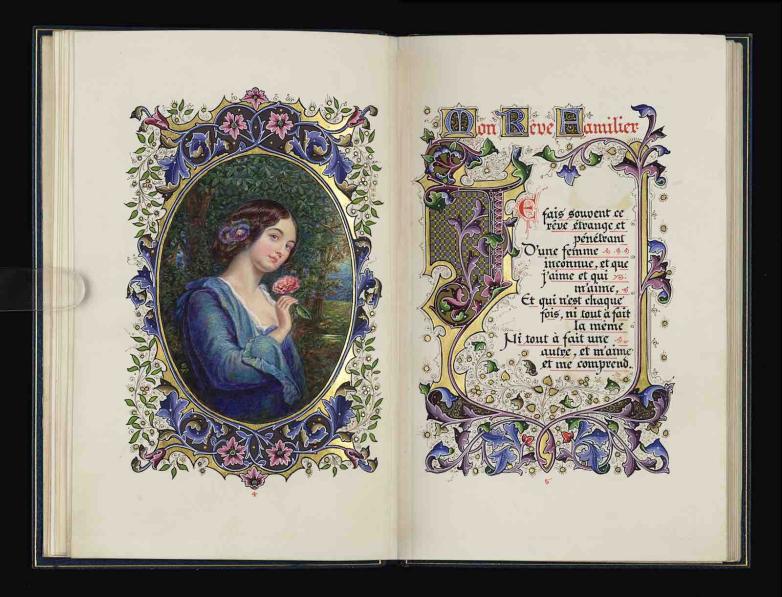 Mon Rêve Familier
JE
fais souvent ce
rêve étrange et
pénétrant
D'une femme
inconnue, et que
j'aime et qui
m'aime,
Et qui n'est chaque
fois, ni tout à fait
la même
Ni tout à fait une
autre, et m'aime
et me comprend.